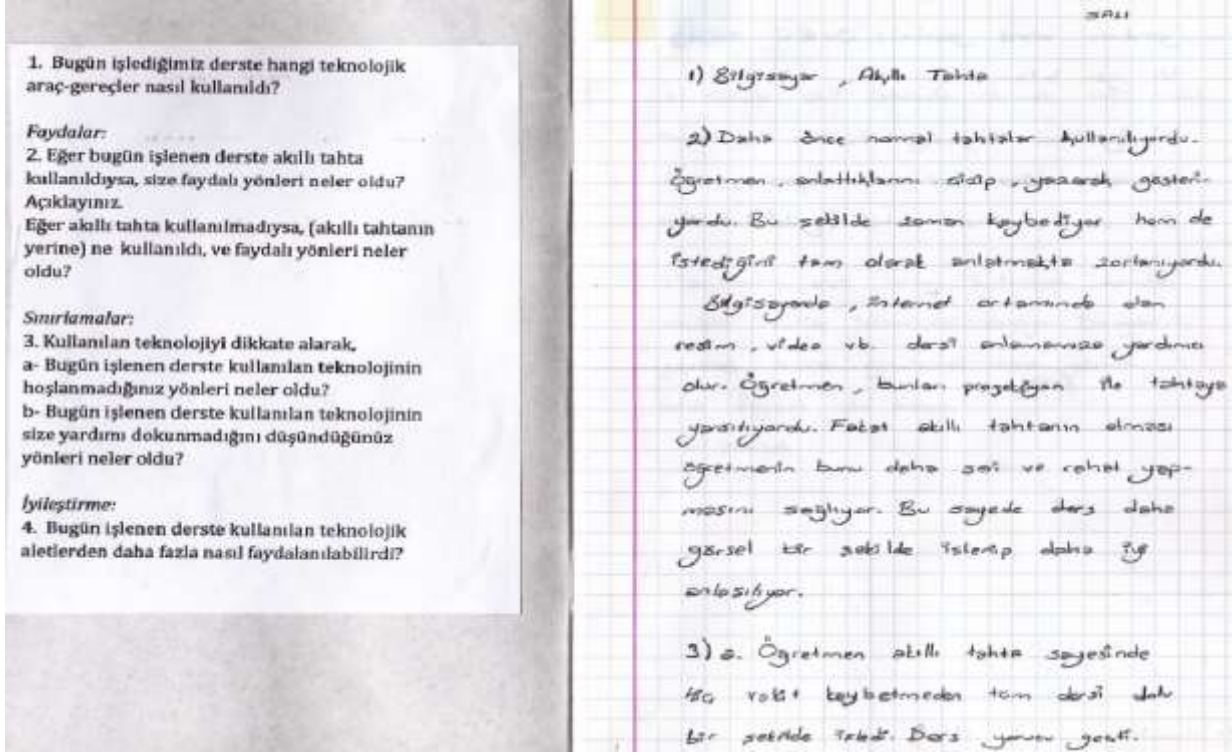 1. Bugün işlediğimiz derste hangi teknolojik
araç-gereçler nasıl kullanıldı?
Faydalar:
2. Eğer bugün işlenen derste akıllı tahta
kullanıldıysa, size faydalı yönleri neler oldu?
Açıklayınız.
Eğer akıllı tahta kullanılmadıysa, (akıllı tahtanın
yerine) ne kullanıldı, ve faydalı yönleri neler
oldu?
Sınırlamalar:
3. Kullanılan teknolojiyi dikkate alarak,
a- Bugün işlenen derste kullanılan teknolojinin
hoşlanmadığınız yönleri neler oldu?
b- Bugün işlenen derste kullanılan teknolojinin
size yardımı dokunmadığını düşündüğünüz
yönleri neler oldu?
İyileştirme:
4. Bugün işlenen derste kullanılan teknolojik
aletlerden daha fazla nasıl faydalanılabilirdi?
SALI
1) Bilgisayar , Akıllı Tahta
2) Daha önce normal tahtalar kullanılıyordu.
Öğretmen , anlattıklarını çizip , yazarak gösteri-
yordu. Bu şekilde zaman kaybediyor hem de
istediğini tam olarak anlatmakta zorlanıyordu.
Bilgisayarda , internet ortamında olan
resim , video vb. dersi anlamamıza yardımcı
olur. Öğretmen , bunları projeksiyon ile tahtaya
yansıtıyordu. Fakat akıllı tahtanın olması
öğretmenin bunu daha seri ve rahat yap-
masını sağlıyor. Bu sayede ders daha
görsel bir şekilde işlenip daha iyi
anlaşılıyor.
3) a. Öğretmen akıllı tahta sayesinde
hiç vakit kaybetmeden tüm dersi dolu
bir şekilde işledi. Ders yorucu geçti.